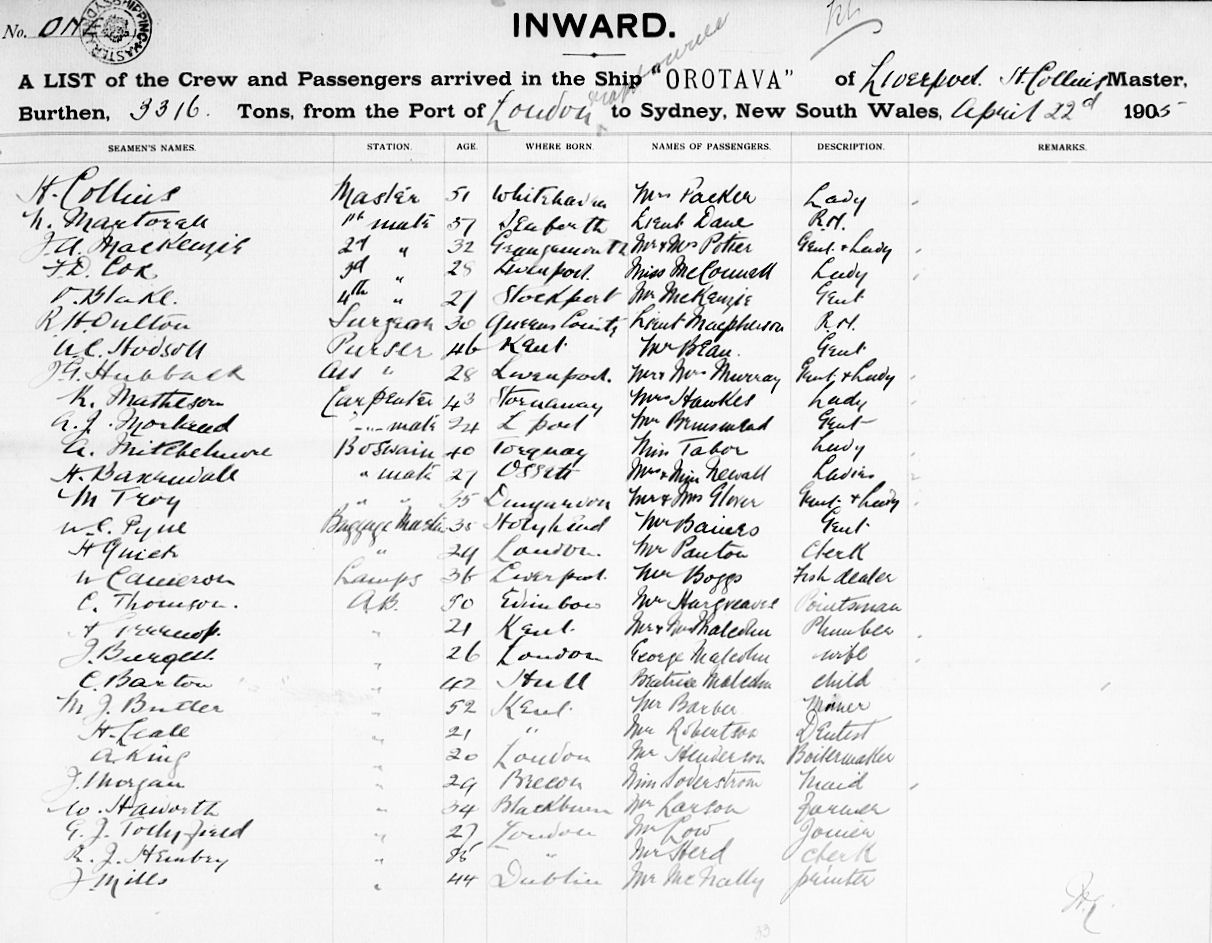 INWARD.
No. ON
A LIST of the Crew and Passengers arrived in the Ship "OROTAVA" of Liverpool. H. Collins Master,
Burthen, 3316. Tons, from the Port of London to Sydney, New South Wales, April 22d 1905
SEAMEN'S NAMES. STATION. AGE. WHERE BORN. NAMES OF PASSENGERS. DESCRIPTION. REMARKS.
H. Collins Master 51 Whitehaven Mrs Packer Lady
1st mate 37 Seaforth Lieut Dane R.N.
J. A. MacKenzie 2d " 32 Grangemouth Mr & Mrs Potter Gent & Lady
F. D. Cox 3rd " 28 Liverpool. Miss McConnell Lady
Blake. 4th " 27 Stockport Mr McKenzie Gent
R H Oulton Surgeon 30 Queens County Lieut Macpherson R.N.
W. C. Hodsoll Purser 46 Kent Mr Bean. Gent
J. G. Hubback Ass " 28 Liverpool. Mr & Mrs Murray Gent & Lady
K. Matheson Carpenter 43 Stornaway Mrs Hawkes Lady
A. J. Morland " mate 24 L pool Mr Gent
A. Mitchelmore BoSwain 40 Torquay Miss Tabor Lady
H. Baxendall " mate 27 Ossett Mrs & Miss Newall Ladies
M Troy " " 35 Dungarvon Mr & Mrs Glover Gent & Lady
W. C. Pyne Baggage Master 35 Holyhead Mr Gent
H Quick " 29 London. Mr Panton Clerk
W Cameron Lamps 36 Liverpool. Mr Boggs Fish dealer
C. Thomson. A.B. 50 Mr Hargreaves Pointsman
" 21 Kent. Mr & Mrs Malcolm Plumber
J. Burgess. " 26 London George Malcolm wife
C. Barton " 42 Hull Beatrice Malcolm child
M J. Butler " 52 Kent. Mr Barber Miner
H. Leale " 21 " Mr Robertson Dentist
A. King " 20 London Mr Henderson Boilermaker
J. Morgan " 29 Brecon Miss Soderstrom Maid
W. Haworth " 34 Blackburn Mr Larson Farmer
G. J. Tollyfield " 27 London Mr Low Joiner
R. J. Hembry " " Mr Herd Clerk
J Mills " 44 Dublin Mr McNally printer
33